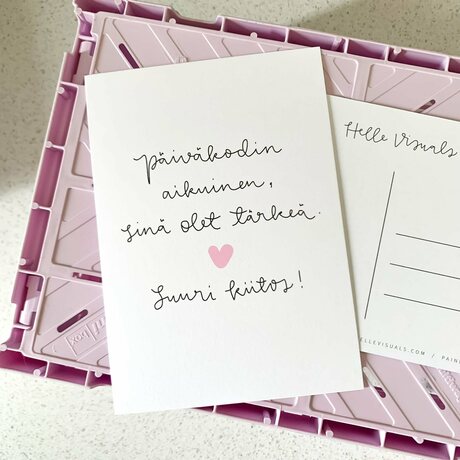 päiväkodin
aikuinen,
sinä olet tärkeä.
Suuri kiitos!
Helle Visuals
ELLEVISUALS.COM / PAIN